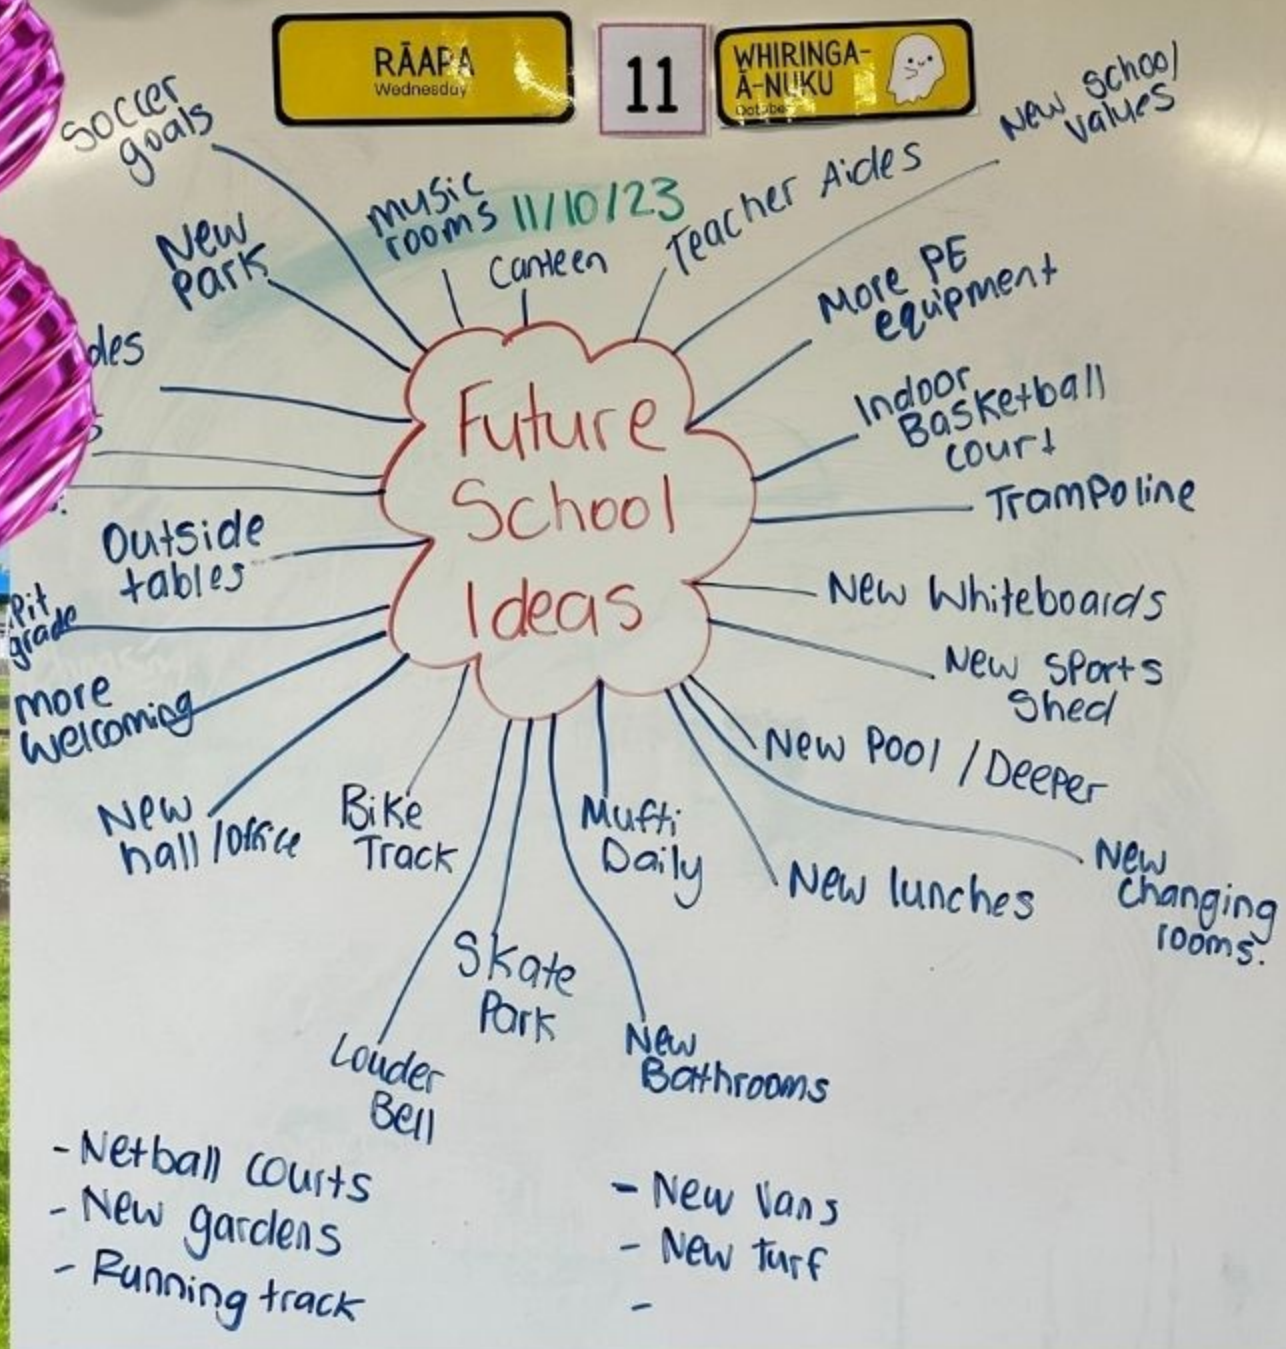 RĀAPA
Wednesday
11
WHIRINGA-
Ā-NUKU
October
11/10/23
Future
School
Ideas
Soccer
goals
New
Park
music
rooms
Canteen
Teacher Aides
New School
Values
More PE
equipment
Indoor
Basketball
court
Trampoline
New Whiteboards
New Sports
Shed
New Pool / Deeper
New
Changing
rooms.
New lunches
Mufti
Daily
New
Bathrooms
Skate
Park
Louder
Bell
Bike
Track
New
hall / Office
more
Welcoming
Pit
grade
Outside
tables
des
- Netball courts
- New gardens
- Running track
- New Vans
- New turf
-